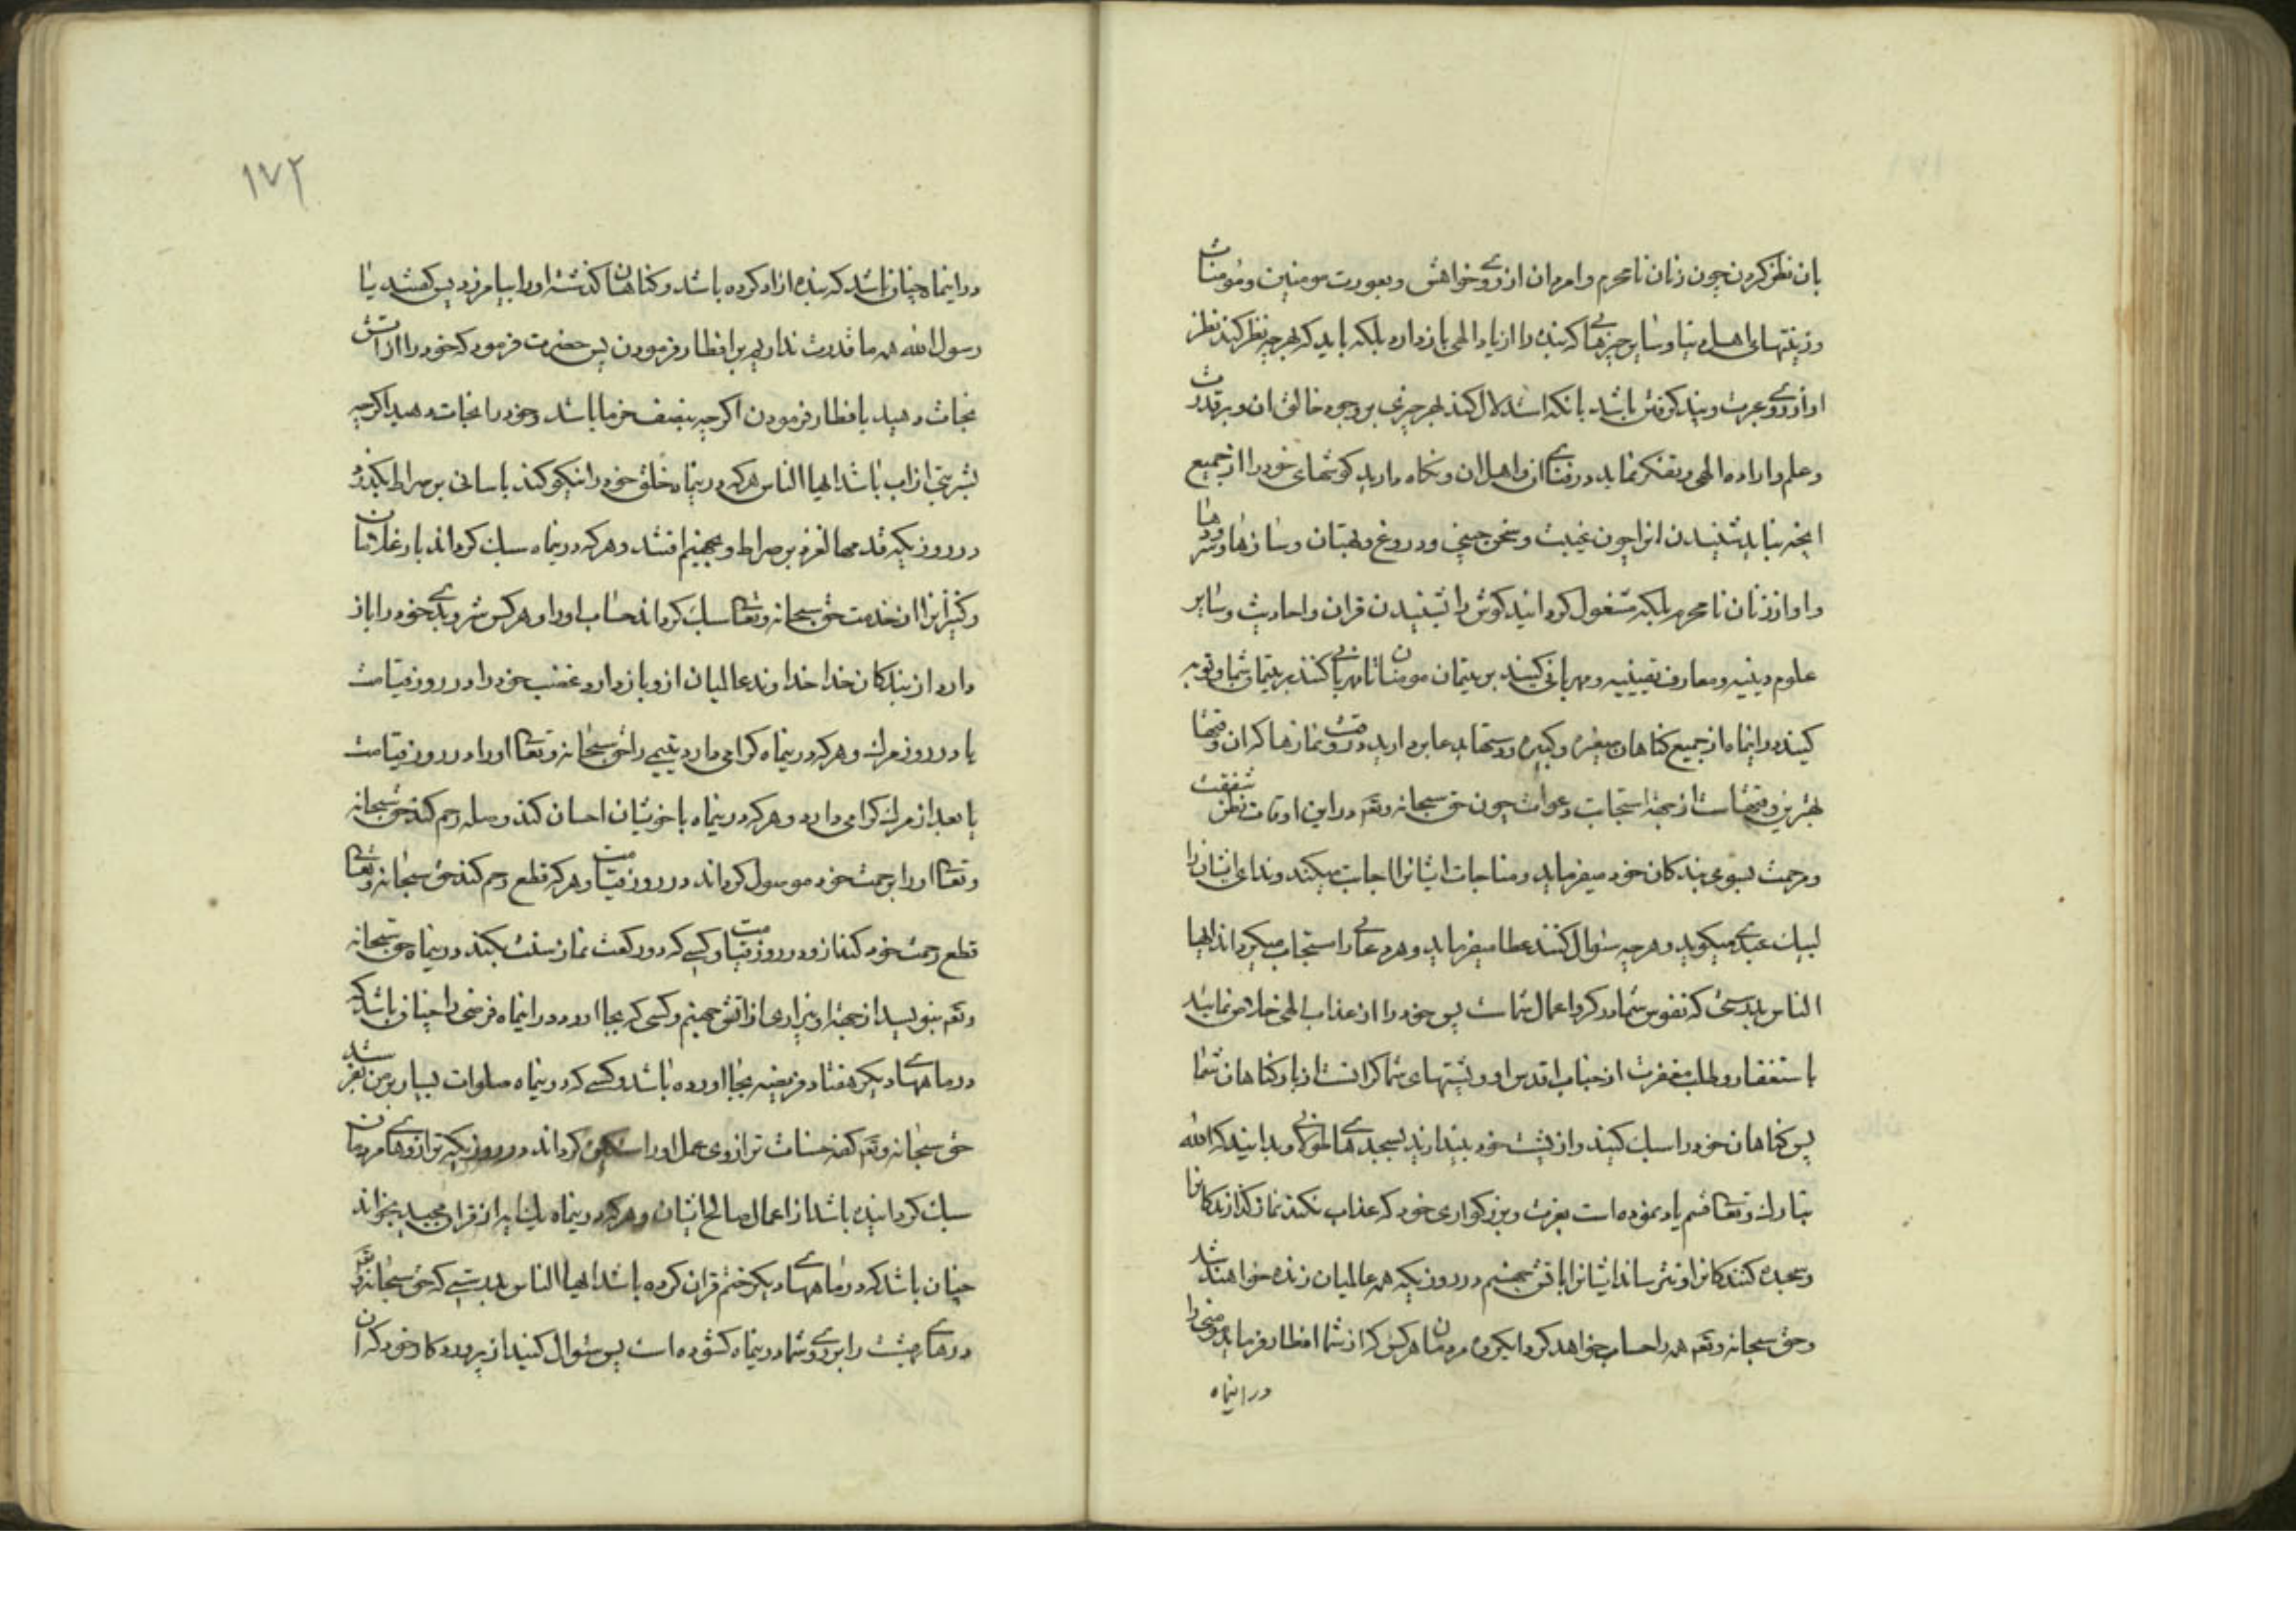 بان نظر کردن چون زنان نامحرم و امردان از روی خواهش و بعورت مومنین و مومنات
و زینتهای اهل دنیا و سایر چیزهایی که بنده را از یاد الهی باز دارد بلکه باید که بهر چه نظر کند نظر
او از روی عبرت و پند گرفتن باشد بانکه استدلال کند بهر چیزی بر وجود خالق ان و بر قدرت
و علم و اراده الهی و تفکر نماید در فنای ان و اهل ان و نکاه دارید کوشهای خود را از جمیع
انچه نباید شنیدن انرا چون غیبت و سخن چینی و دروغ و بهتان و سازها و سرودها
و اواز زنان نامحرم بلکه مشغول کردانید کوش را بشنیدن قران و احادیث و سایر
علوم دینیه و معارف یقینیه و مهربانی کنید بر یتیمان مومنان تا مهربانی کنند بر یتیمان شما و توبه
کنید در اینماه از جمیع کناهان صغیره و کبیره و دستها بدعا بردارید در وقت نمازها که ان وقتها
بهترین وقتهاست از جهة استجابت دعوات چون حق سبحانه و تعه در این اوقات نظر شفقت
و مرحمت بسوی بندکان خود میفرماید و مناجات ایشانرا اجابت میکند و ندای ایشان را
لبیک عبدی میکوید و هر چه سئوال کنند عطا میفرماید و هر دعائی را مستجاب میکرداند ایها
الناس بدرستی که نفوس شما در کرو اعمال شماست پس خود را از عذاب الهی خلاص نمایند
باستغفار و طلب مغفرت از جناب اقدس او و پشتهای شما کرانست از بار کناهان شما
پس کناهان خود را سبک کنید و از پشت خود بیندازید بسجدهای طولانی و بدانید که الله
تبارک و تعالی قسم یاد نموده است بعزت و بزرکواری خود که عذاب نکند نماز کذارندکانرا
و سجده کنندکانرا و نترساند ایشانرا باتش جهنم در روزیکه همه عالمیان زنده خواهند شد
و حق سبحانه و تعه همه را حساب خواهد کرد ایکروه مردمان هر کس که از شما افطار فرماید مومنی را
در اینماه
۱۷۲
در اینماه چنان باشد که بنده ازاد کرده باشد و کناهان کذشته او را بیامرزد پس کفتند یا
رسول الله همه ما قدرت نداریم بر افطار فرمودن پس حضرت فرمود که خود را از اتش
نجات دهید بافطار فرمودن اکر چه بنصف خرما باشد و خود را نجات دهید اکر چه
بشربتی از اب باشد ایها الناس هر که در اینماه خلق خود را نیکو کند باسانی بر صراط بکذرد
در روزیکه قدمها لغزد بر صراط و بجهنم افتند و هر که در اینماه سبک کرداند بار غلامان
و کنیزانرا از خدمت حق سبحانه و تعالی سبک کرداند حساب او را و هر کس شر و بدی خود را باز
دارد از بندکان خدا خداوند عالمیان ازو باز دارد غضب خود را در روز قیامت
یا در روز مرک و هر که در اینماه کرامی دارد یتیمی را حق سبحانه و تعالی او را در روز قیامت
یا بعد از مرک کرامی دارد و هر که در اینماه با خویشان احسان کند و صله رحم کند حق سبحانه
و تعالی او را برحمت خود موصول کرداند در روز قیامت و هر که قطع رحم کند حق سبحانه و تعالی
قطع رحمت خود کند ازو در روز قیامت و کسی که دو رکعت نماز سنت بکند در اینماه حق سبحانه
و تعه بنویسد از جهة او بیزاری از اتش جهنم و کسی که بجا اورد در اینماه فرضی را چنان باشد که
در ماههای دیکر هفتاد فریضه بجا اورده باشد و کسی که در اینماه صلوات بسیار بر من بفرستد
حق سبحانه و تعه کفه حسنات ترازوی عمل او را سنکین کرداند در روزیکه ترازوهای مردمان
سبک کردانیده باشد از اعمال صالح ایشان و هر که در اینماه یک ایه از قران مجید بخواند
چنان باشد که در ماههای دیکر ختم قران کرده باشد ایها الناس بدرستی که حق سبحانه و تعه
درهای بهشت را بر روی شما در اینماه کشوده است پس سئوال کنید از پروردکار خود که ان